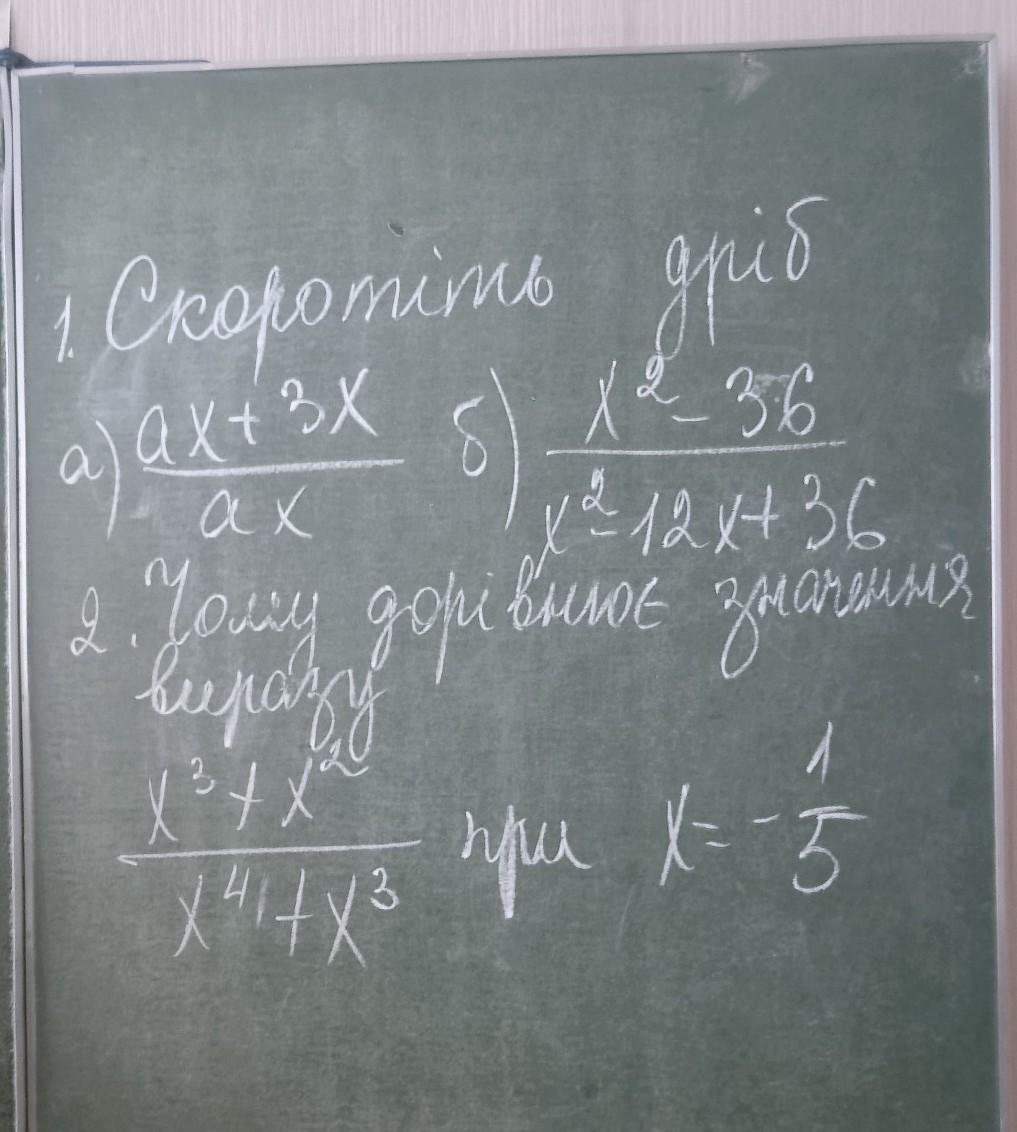 1. Скоротіть дріб
а) (ax + 3x)/(ax) б) (x² - 36)/(x² - 12x + 36)
2. Чому дорівнює значення
виразу
(x³ + x²)/(x⁴ + x³) при x = -1/5